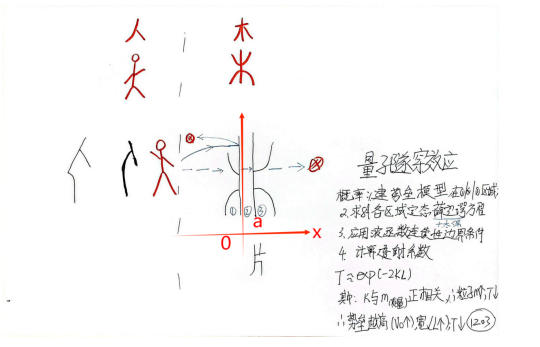 人
木
⊗
⊗
① ② ③
a
0
x
量子隧穿效应
概率:1.建势垒模型 在0/a/0区域
2.求解各区域定态薛定谔方程
3.应用波函数连续性边界条件
4.计算透射系数
T≈exp(-2KL)
其中:K与m(质量)正相关,∴粒子m↑,T↓
∴势垒越高(V₀↑)宽(L↑),T↓ 1203